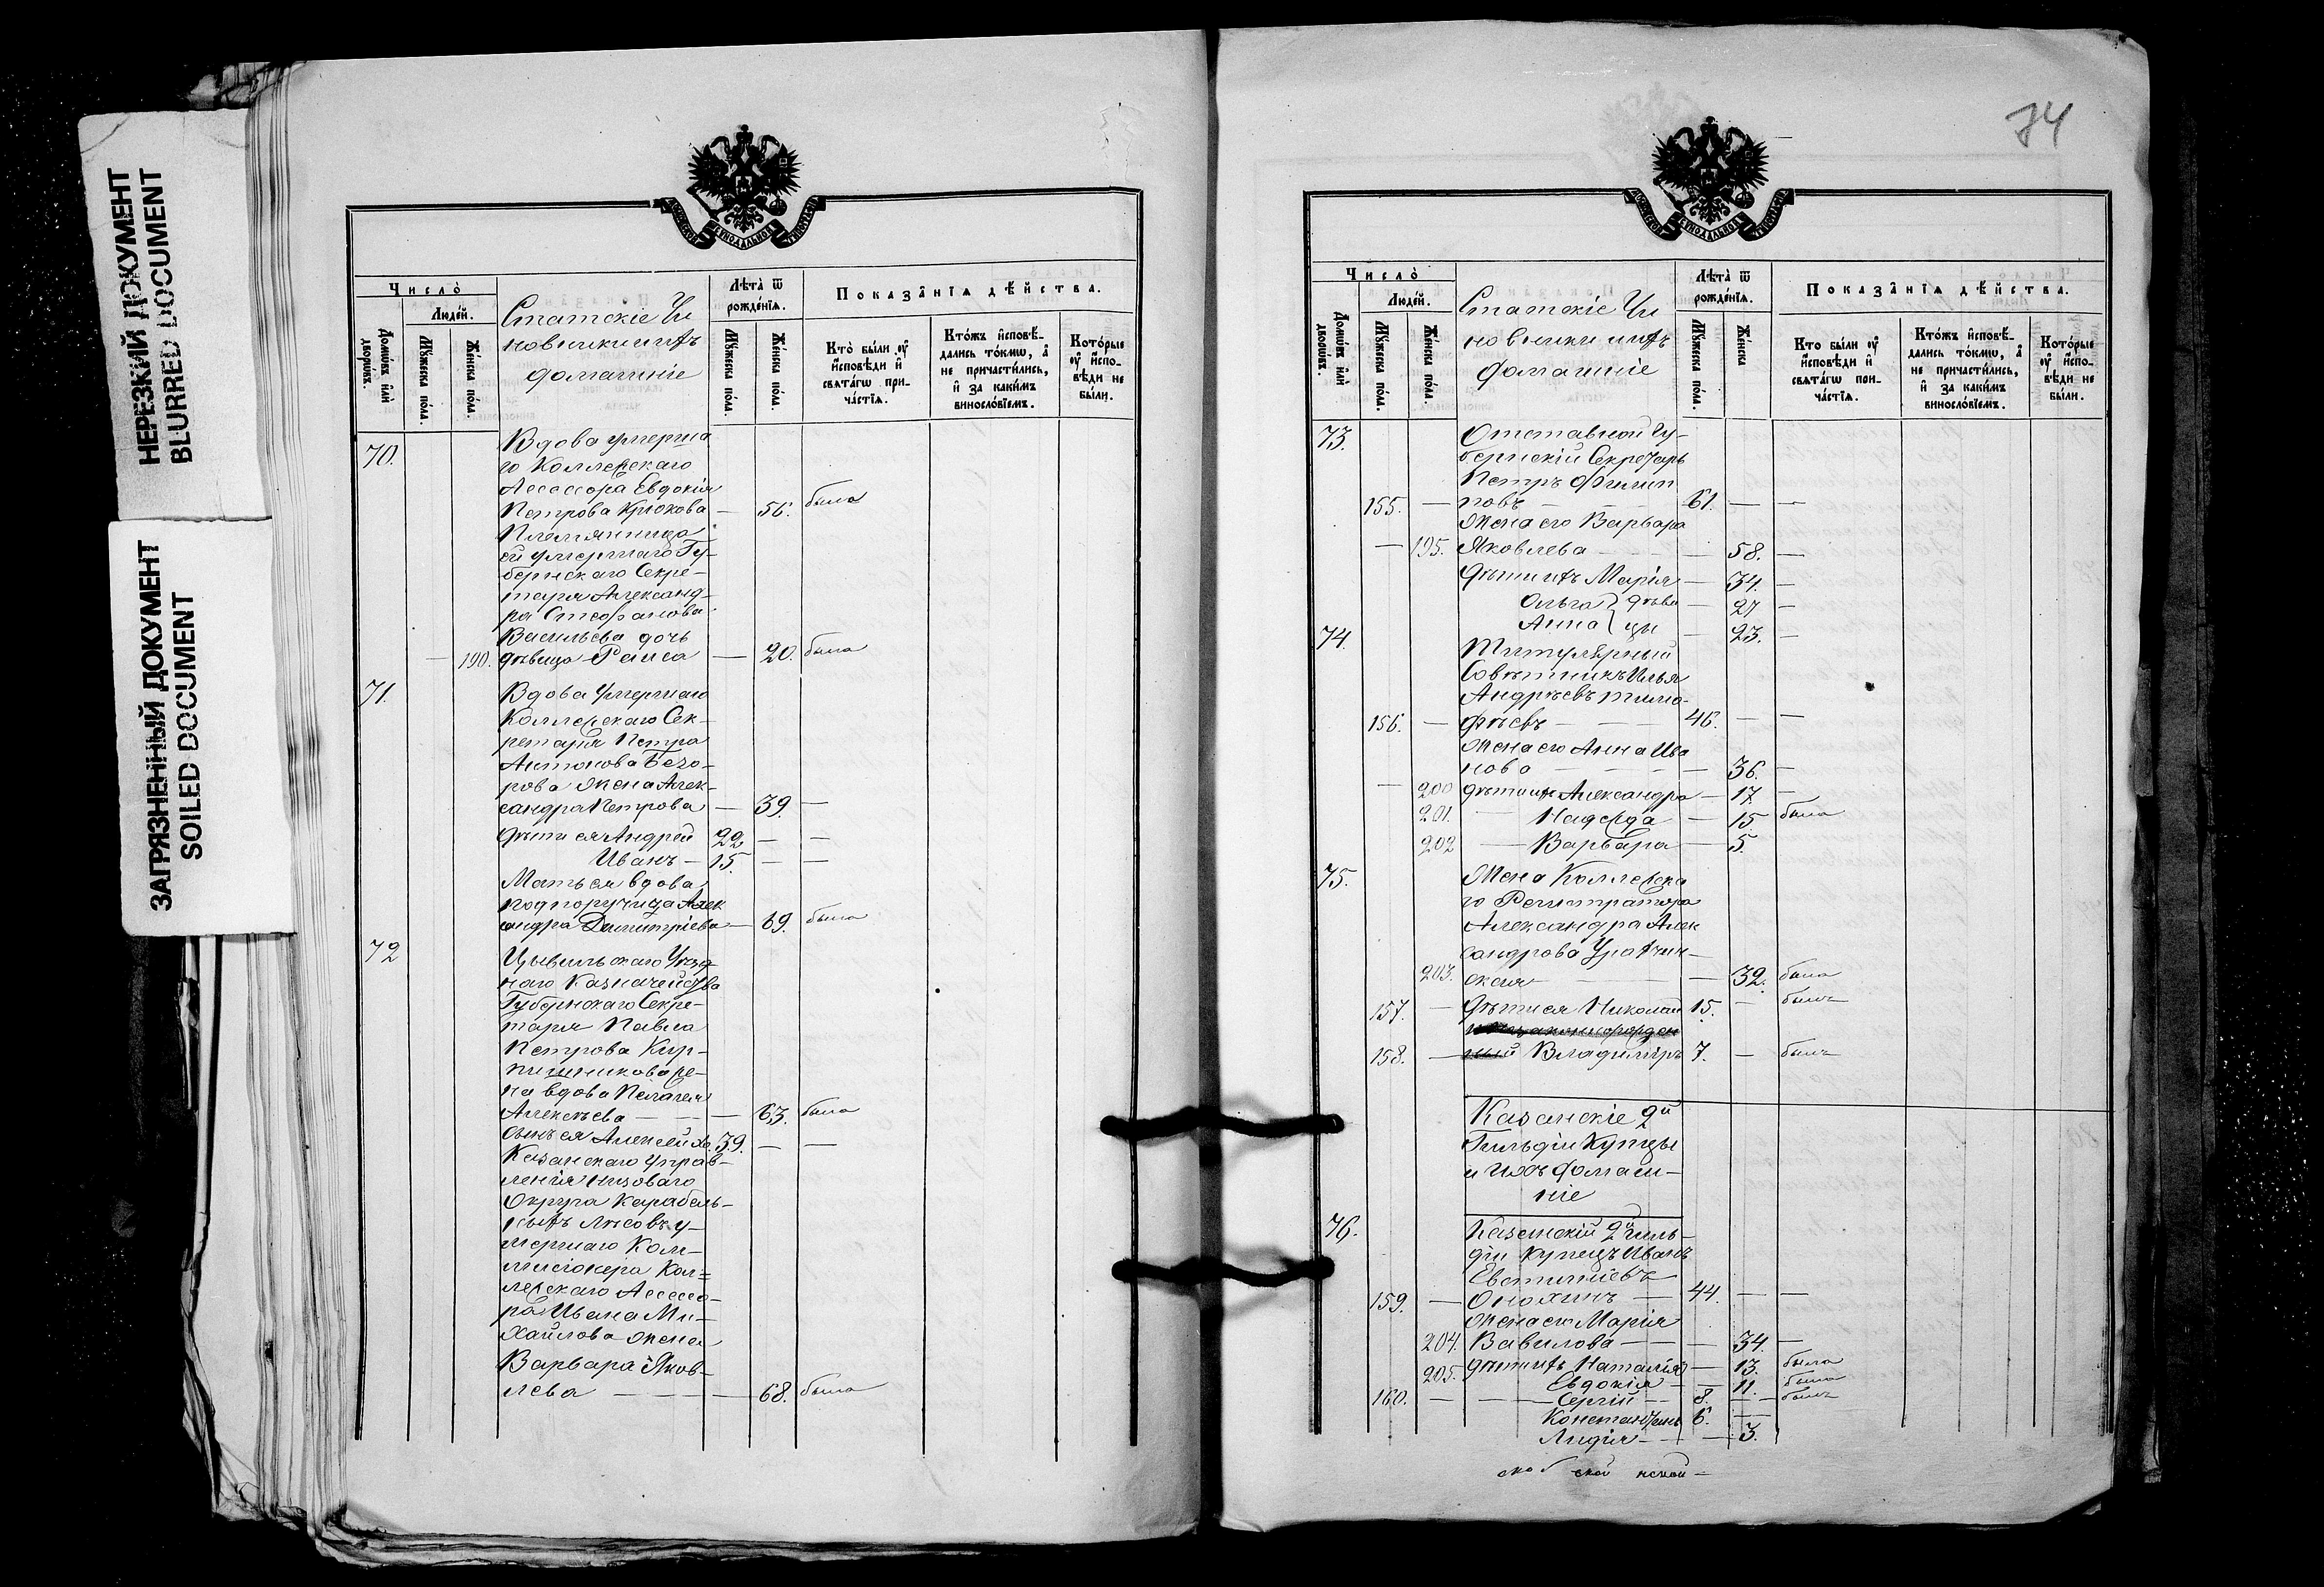 НЕРЕЗКИЙ ДОКУМЕНТ
BLURRED DOCUMENT
ЗАГРЯЗНЕННЫЙ ДОКУМЕНТ
SOILED DOCUMENT
Число̀
Людéй.
Домѡ́въ и҆лѝ дворѡ́въ.
Мꙋ́жеска по́ла.
Же́нска по́ла.
Статскіе Чи
новники и ихъ
домашніе
Лѣ́та ѿ рождéнїѧ.
Мꙋ́жеска по́ла.
Же́нска по́ла.
Показа̑нїѧ дѣ́йства.
Кто̀ бы́ли ᲂу҆ и҆́сповѣди и҆ свѧта́гѡ причáстїѧ.
Кто́жъ и҆сповѣ́дались то́кмѡ, а҆ не причасти́лись, и҆ за каки́мъ винослóвїемъ.
Кото́рые ᲂу҆ и҆́сповѣди не бы́ли.
70.
Вдова умерша
го Коллежскаго
Ассессора Евдокія
Петрова Крюкова — 56. была
Племянница
ей умершаго Гу-
бернскаго Секре-
таря Александ-
ра Стефанова
Васильева дочь
— 190. дѣвица Раиса — 20. была
71.
Вдова умершаго
Коллежскаго Сек-
ретаря Петра
Антонова
жена Алек-
сандра Петрова — 39. —
Дѣти ея Андрей 22 — —
Иванъ — 15. — —
Мать ея вдова
подпоручица Алек
сандра Димитріева — 69. была
72
Цывильскаго Уѣзд
наго Казначейства
Губернскаго Секре-
таря Павла
Петрова Кир-
пишникова же-
на вдова Пелагея
Алексѣева — — — 63. была
Сынъ ея Алексей 39. — —
Казанскаго управ-
ленія Низоваго
Округа Карабель-
ныхъ лѣсовъ у-
мершаго Ком-
мисіонера Кол=
лежскаго Ассессо-
ра Ивана Ми-
хайлова жена
Варвара Яков-
лева — — — 68. была
74
Число̀
Людéй.
Домѡ́въ и҆лѝ дворѡ́въ.
Мꙋ́жеска по́ла.
Же́нска по́ла.
Статскіе Чи
новники и ихъ
домашніе
Лѣ́та ѿ рождéнїѧ.
Мꙋ́жеска по́ла.
Же́нска
Показа̑нїѧ дѣ́йства.
Кто бы́ли ᲂу҆ и҆́сповѣди и҆ свѧта́гѡ причáстїѧ.
Кто́жъ и҆сповѣ́дались то́кмѡ, а҆ не причасти́лись, и҆ за каки́мъ винослóвїемъ.
Кото́рые ᲂу҆ и҆́сповѣди не бы́ли.
73.
Отставной Гу-
бернскій Секретарь
Петръ Филип
155. — повъ — 61. — —
Жена его Варвара
— 195. Яковлева — — 58. —
Дѣти ихъ Марія — 34. —
Ольга } дѣви — 27 —
Анна } цы — 23. —
74.
Титулярный
Совѣтникъ Илья
Андреевъ Тимо-
156. — фѣевъ — — 46. — —
Жена его Анна Ива
нова — — — 36. —
— 200 дѣти ихъ Александра — 17. —
201. — Надежда — 15. была
202 — Варвара — 5.
75.
Жена Коллежска
го Регистратора
Александра Алек
сандрова
203. ская — — 32. была
157. — Дѣти ея Николай 15. — былъ
158. — Владиміръ 7. — былъ
Казанскіе 2й
Гильдіи Купцы
и Ихъ Домаш-
ніе
76.
Казанскій 2й гиль-
діи купецъ Иванъ
Евстигніевъ
159. — Онохинъ — 44. — —
Жена его Марія
204. Вавилова — — 34. —
205. дѣти ихъ Наталія — 13. была
Евдокія — 11. была
160. — — Сергій — 8. — былъ
Константинъ 6. —
Лидія — — 3.